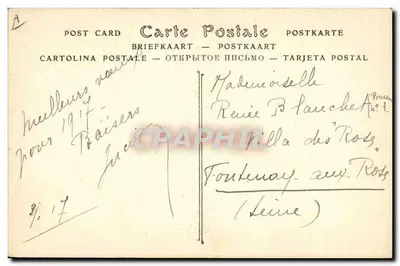 A
POST CARD Carte Postale POSTKARTE
BRIEFKAART — POSTKAART
CARTOLINA POSTALE — ОТКРЫТОЕ ПИСЬМО — TARJETA POSTAL
Meilleurs vœux
pour 1917 -
Baisers
3/1 17
Mademoiselle
Renée Blanchet
Villa des "Roses"
Fontenay aux Roses
(Seine)
CPAPHIL.COM